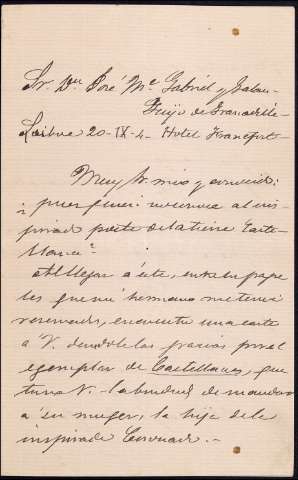 Sr. Dn. José Mª Gabriel y Galan
Guijo de Granadilla
Lisboa 20-IX-4- Hotel Francfort
Muy Sr. mio y
¿ pues quien no conoce al ins-
pirado poeta de la tierra Caste-
llana?
Al llegar á ésta, entre pape
les que mi hermano me tenia
reservados, encuentro una carta
á V. dandole las gracias por el
ejemplar de Castellanas, que
tuvo V. la bondad de mandar
á su muger, la hija de la
inspirada Coronado.-